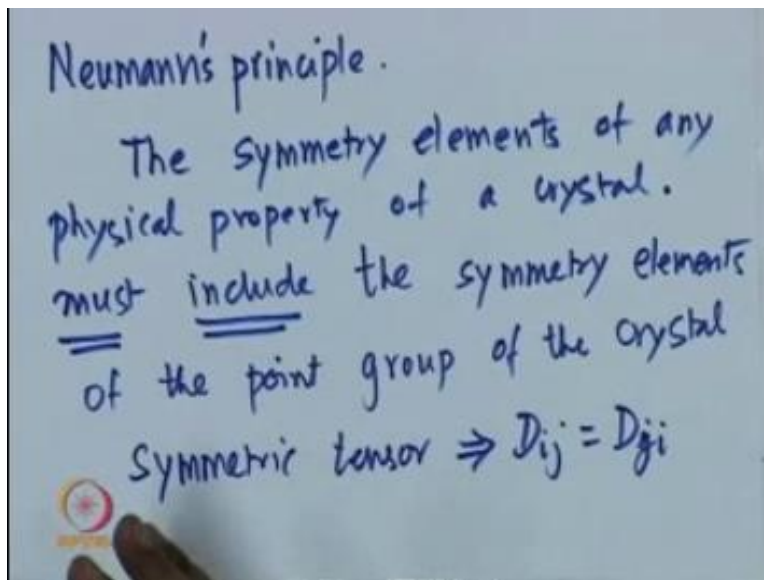 Neumann's principle.
The symmetry elements of any
physical property of a crystal.
must include the symmetry elements
of the point group of the crystal
Symmetric tensor ⇒ Dij = Dji